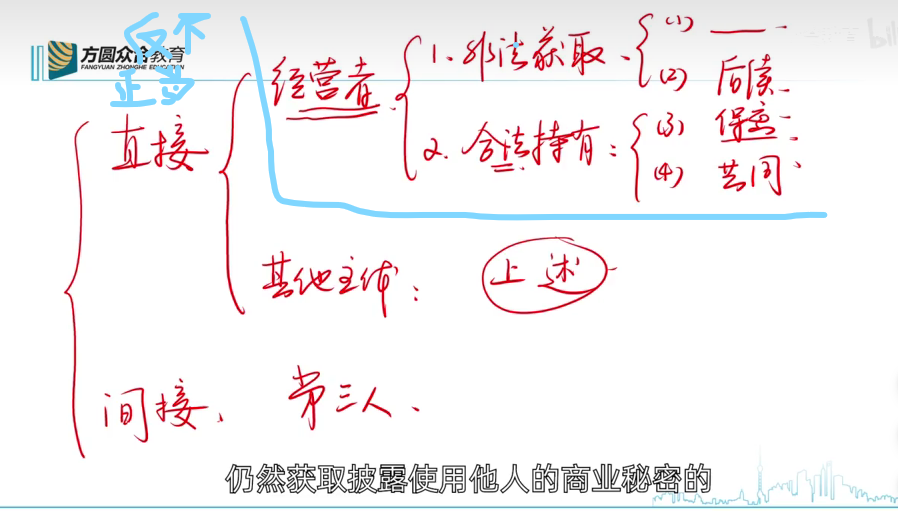 反不
正当
方圆众合教育
FANGYUAN ZHONGHE EDUCATION
bil
直接
经营者
1.非法获取、
(1) ——
(2) 后续
2.合法持有：
(3) 保密
(4) 共同
其他主体：
上述
间接、
第三人、
仍然获取披露使用他人的商业秘密的